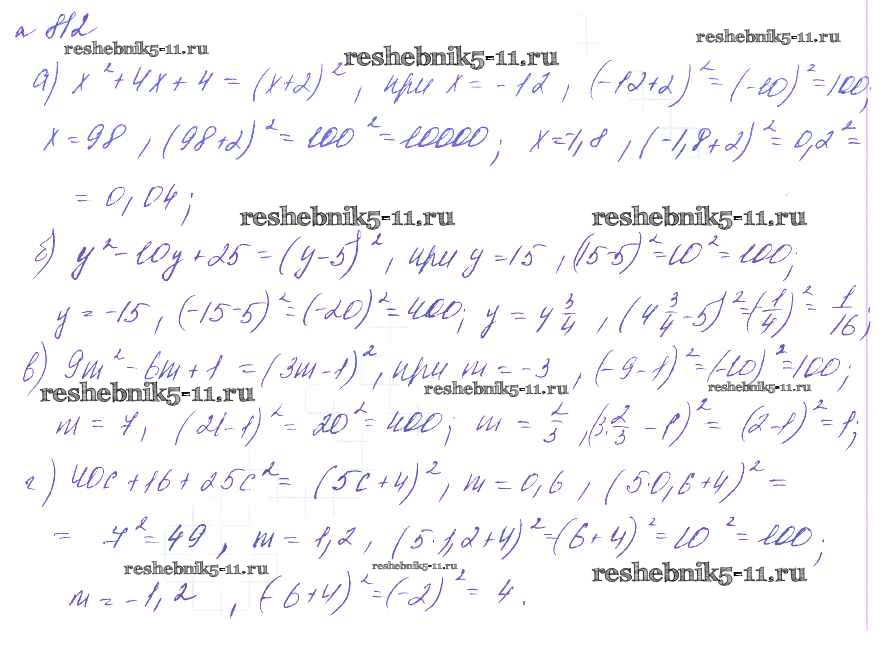 № 812
reshebnik5-11.ru reshebnik5-11.ru reshebnik5-11.ru
а) x² + 4x + 4 = (x+2)², при x = -12, (-12+2)² = (-10)² = 100;
x = 98, (98+2)² = 100² = 10000; x = -1,8, (-1,8+2)² = 0,2² =
= 0,04;
reshebnik5-11.ru reshebnik5-11.ru
б) y² - 10y + 25 = (y-5)², при y = 15, (15-5)² = 10² = 100;
y = -15, (-15-5)² = (-20)² = 400; y = 4 3/4, (4 3/4 - 5)² = (1/4)² = 1/16;
в) 9m² - 6m + 1 = (3m-1)², при m = -3, (-9-1)² = (-10)² = 100;
reshebnik5-11.ru reshebnik5-11.ru reshebnik5-11.ru
m = 7, (21-1)² = 20² = 400; m = 2/3, (3·2/3 - 1)² = (2-1)² = 1;
г) 40c + 16 + 25c² = (5c+4)², m = 0,6, (5·0,6+4)² =
= 7² = 49, m = 1,2, (5·1,2+4)² = (6+4)² = 10² = 100;
reshebnik5-11.ru reshebnik5-11.ru reshebnik5-11.ru
m = -1,2, (-6+4)² = (-2)² = 4.